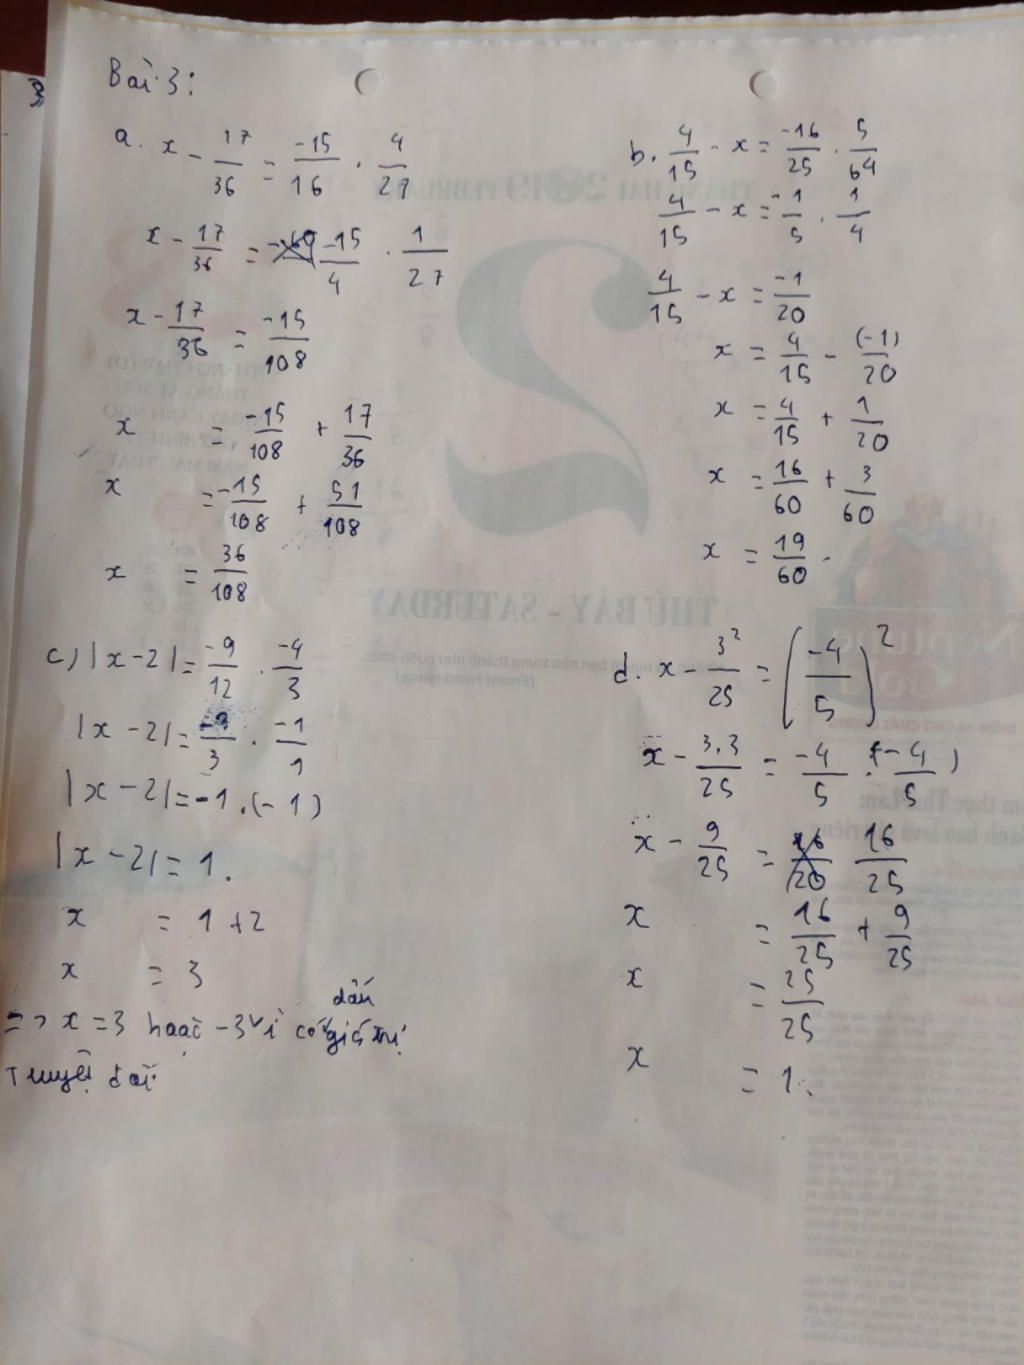 Bài 3:
a. x - 17/36 = -15/16 . 4/27
x - 17/36 = -15/4 . 1/27
x - 17/36 = -15/108
x = -15/108 + 17/36
x = -15/108 + 51/108
x = 36/108
b. 4/15 - x = -16/25 . 5/64
4/15 - x = -1/5 . 1/4
4/15 - x = -1/20
x = 4/15 - (-1)/20
x = 4/15 + 1/20
x = 16/60 + 3/60
x = 19/60 .
c) |x-2| = -9/12 . -4/3
|x-2| = -9/3 . -1/1
|x-2| = -1.(-1)
|x-2| = 1.
x = 1+2
x = 3
=> x = 3 hoặc -3 vì có dấu giá trị
Tuyệt đối
d. x - 3²/25 = (-4/5)²
x - 3.3/25 = -4/5 . (-4/5)
x - 9/25 = 16/25
x = 16/25 + 9/25
x = 25/25
x = 1.
THỨ BẢY - SATERDAY